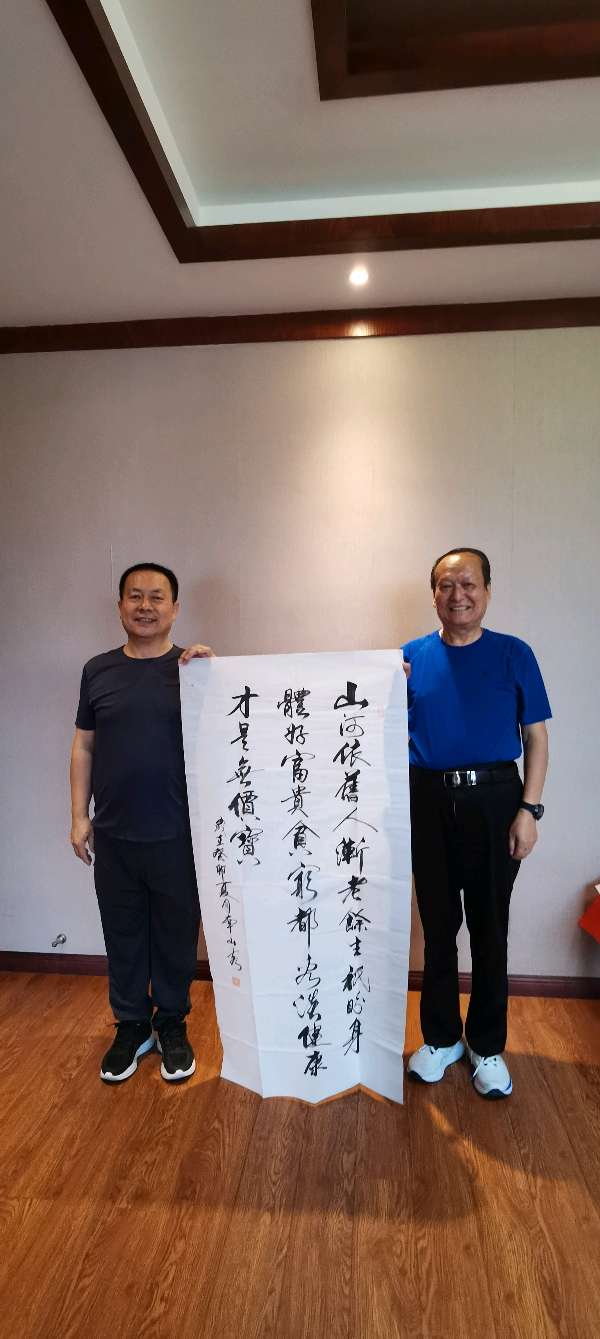 山河依舊人漸老餘生祇盼身
體好富貴貧窮都看淡健康
才是無價寶
歲在癸卯夏月 山